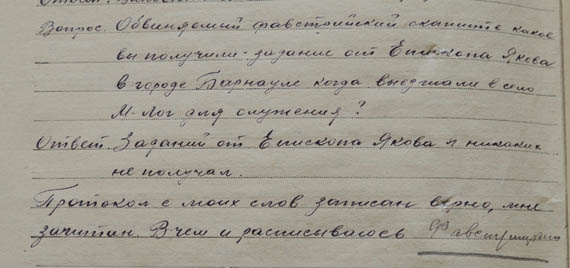 Вопрос. Обвиняемый Фавстрийский скажите какое
вы получили - задание от Епископа Якова
в городе Барнауле когда выезжали в село
М-Лог для служения?
Ответ. Заданий от Епископа Якова я никаких
не получал.
Протокол с моих слов записан верно, мне
зачитан. В чем и расписываюсь